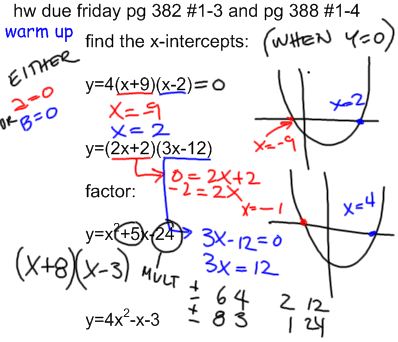 hw due friday pg 382 #1-3 and pg 388 #1-4
warm up
find the x-intercepts: (WHEN Y=0)
EITHER
2=0
OR B=0
y=4(x+9)(x-2)=0
x=-9
x=2
x=2
x=-9
y=(2x+2)(3x-12)
0=2x+2
-2=2x
x=-1
factor:
x=4
y=x²+5x-24
3x-12=0
3x=12
(x+8)(x-3)
MULT
± 6 4 2 12
± 8 3 1 24
y=4x²-x-3